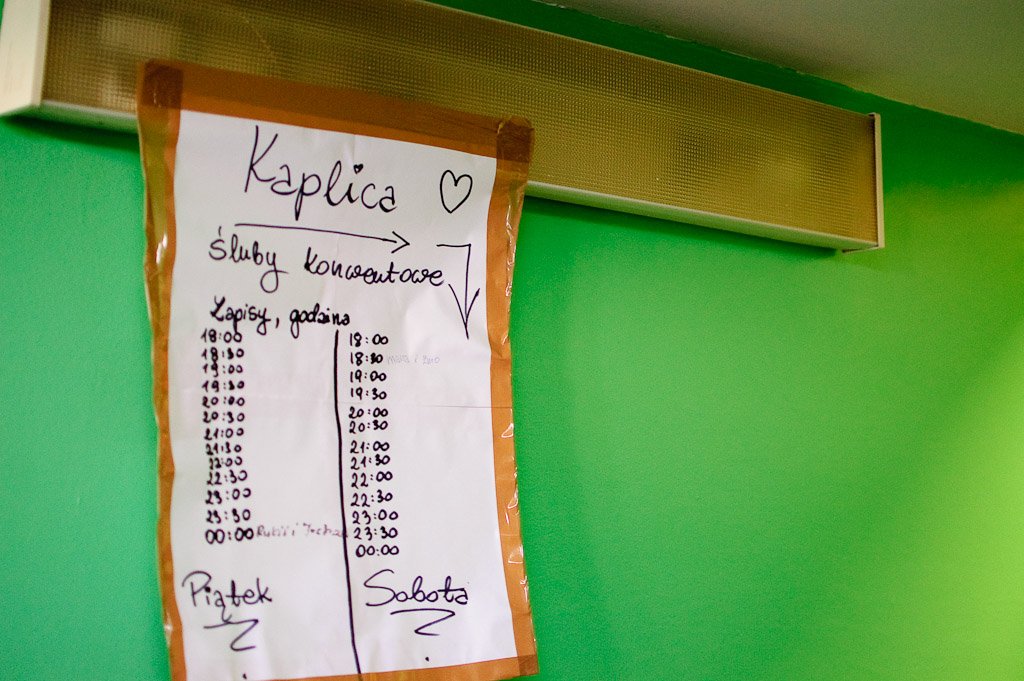 Kaplica
śluby konwentowe
Zapisy, godzina
18:00
18:30
19:00
19:30
20:00
20:30
21:00
21:30
22:00
22:30
23:00
23:30
00:00
Piątek
18:00
18:30
19:00
19:30
20:00
20:30
21:00
21:30
22:00
22:30
23:00
23:30
00:00
Sobota